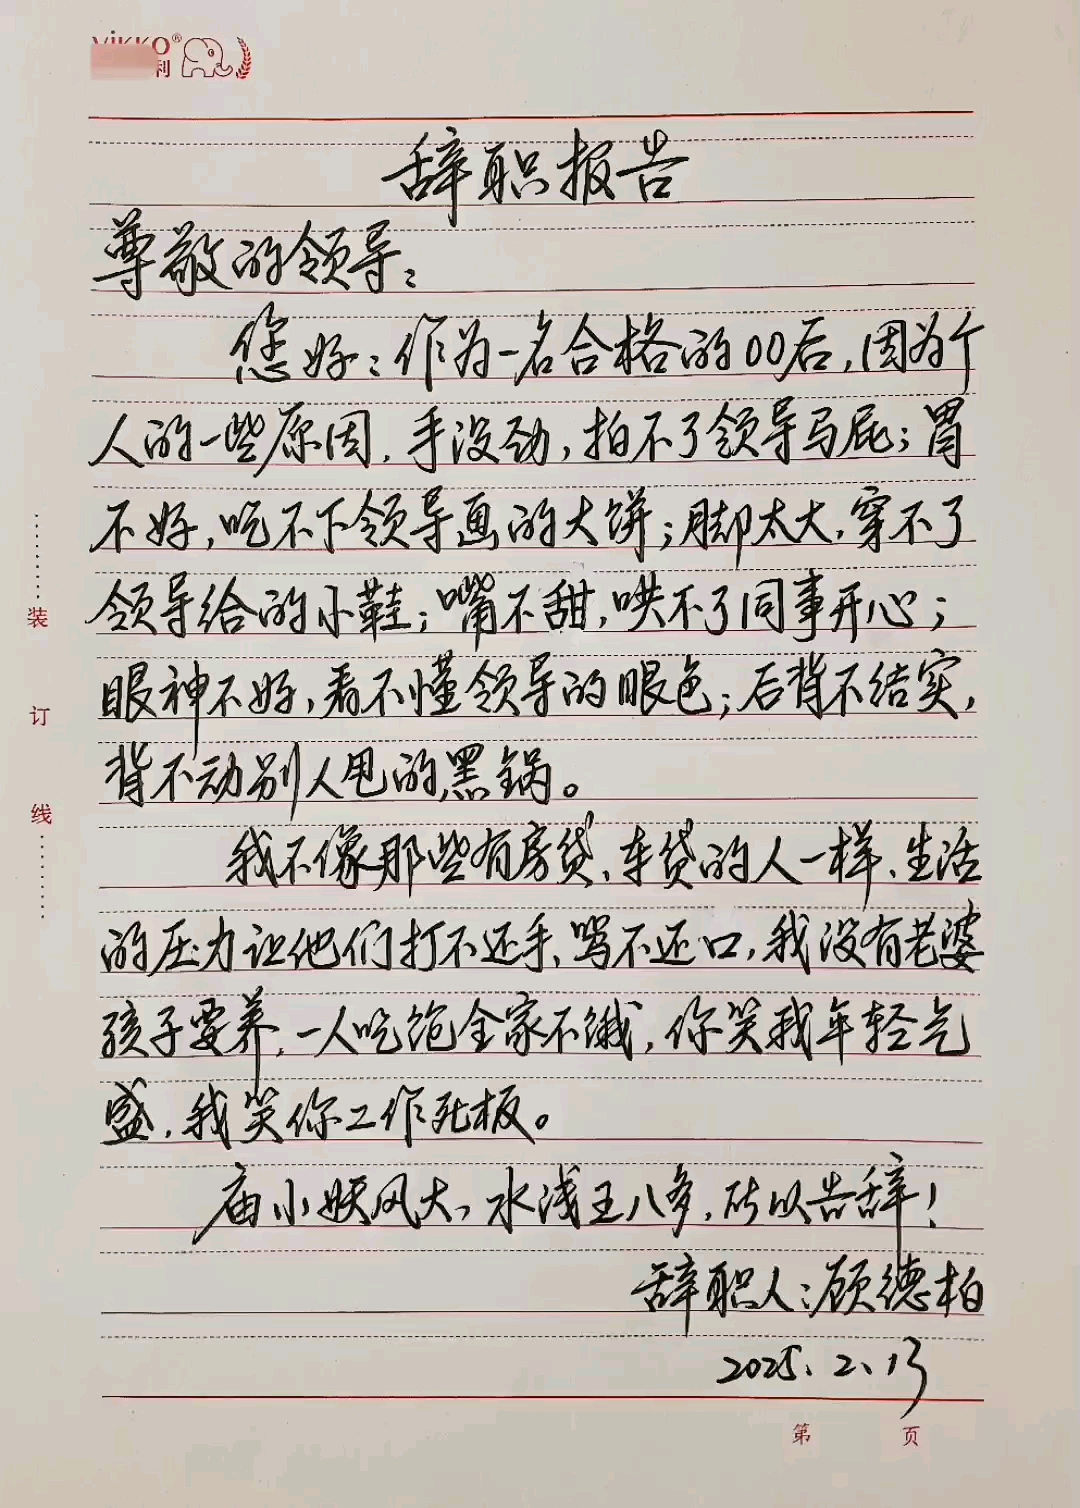 vikko®
利
辞职报告
尊敬的领导：
您好：作为一名合格的00后，因为个
人的一些原因，手没劲，拍不了领导马屁；胃
不好，吃不下领导画的大饼；脚太大，穿不了
领导给的小鞋；嘴不甜，哄不了同事开心；
眼神不好，看不懂领导的眼色；后背不结实，
背不动别人甩的黑锅。
我不像那些有房贷、车贷的人一样、生活
的压力让他们打不还手、骂不还口，我没有老婆
孩子要养，一人吃饱全家不饿，你笑我年轻气
盛，我笑你工作死板。
庙小妖风大、水浅王八多，所以告辞！
辞职人：顾德柏
2025.2.13
装
订
线
第 页